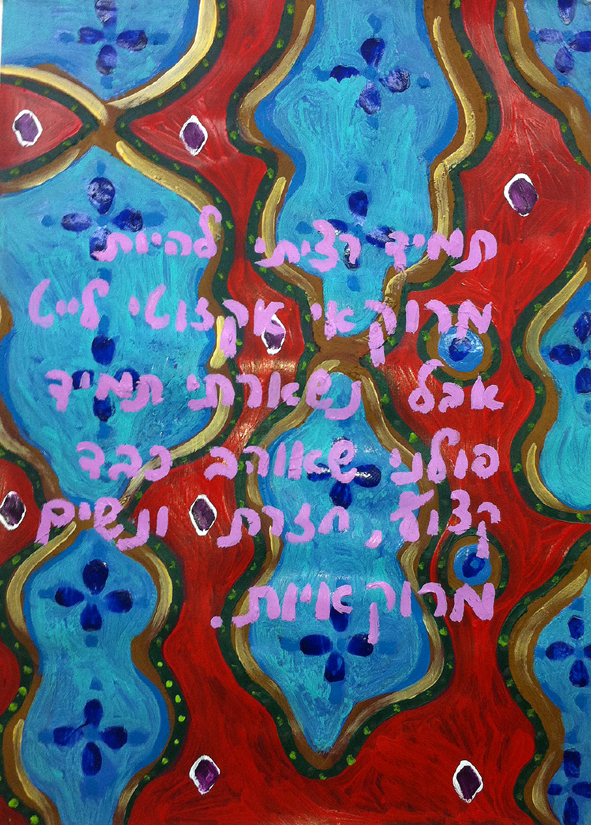 תמיד רציתי להיות
מרוקאי אקזוטי לייט
אבל נשארתי תמיד
פולני שאוהב כבד
קצוץ, חזרת ונשים
מרוקאיות.